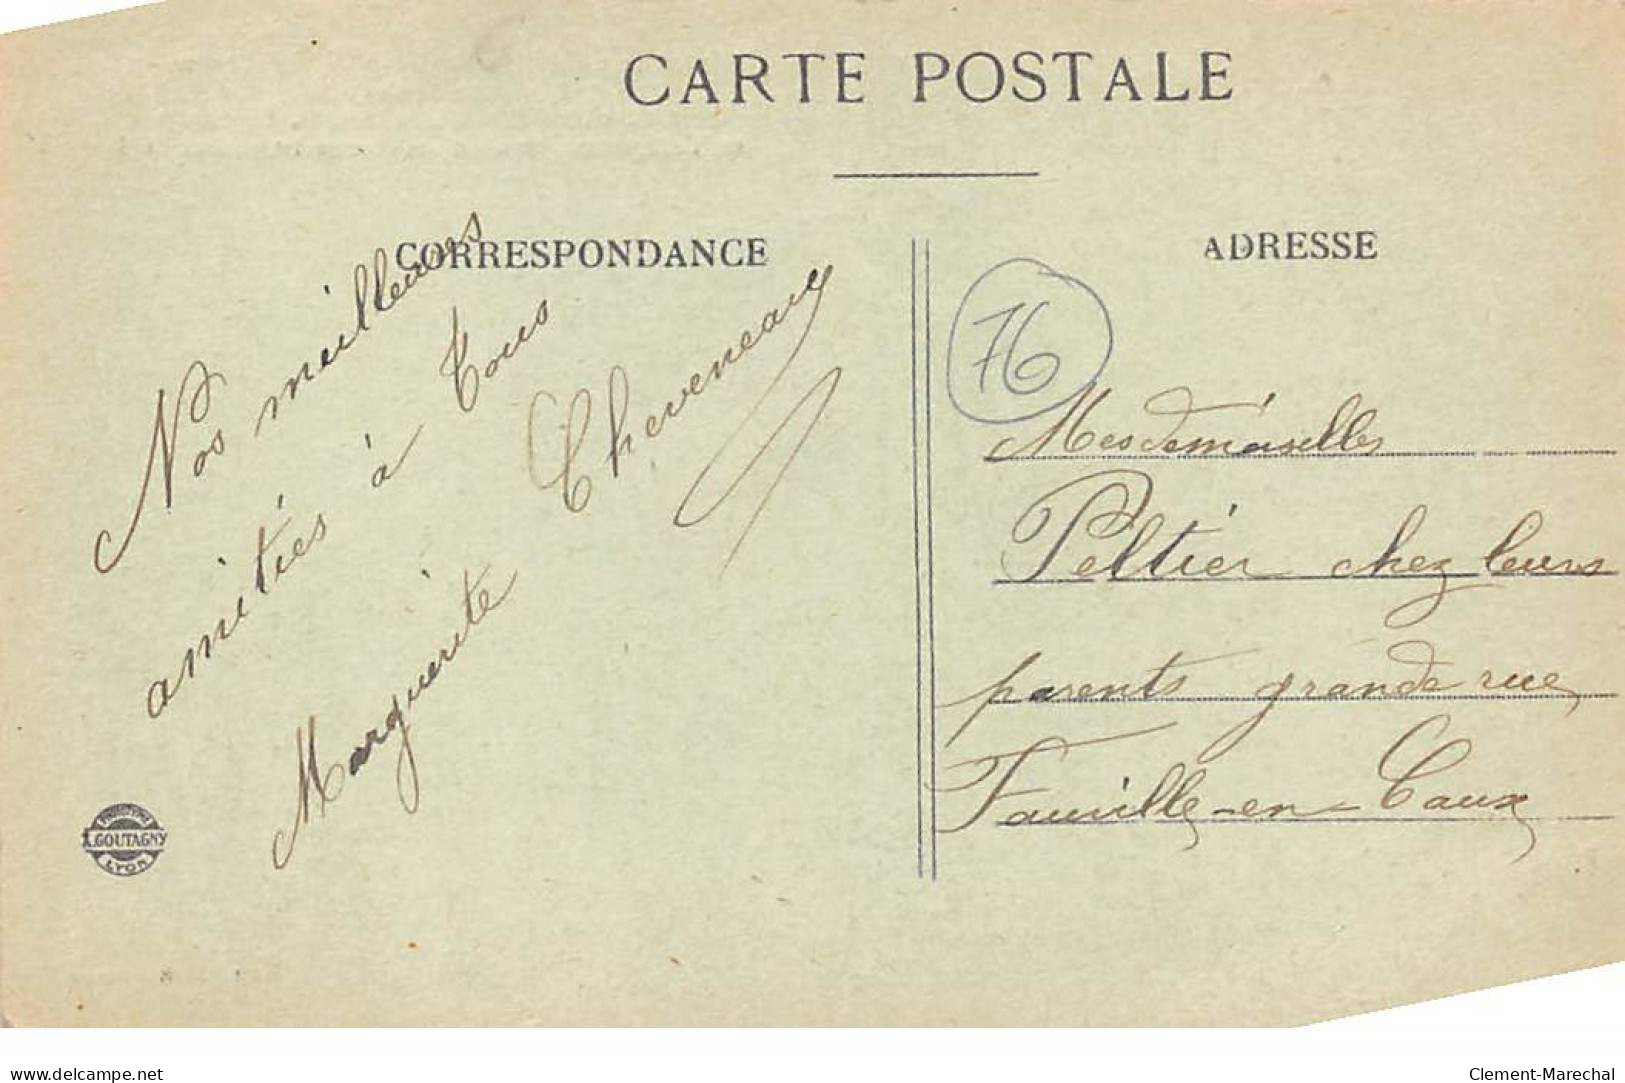 CARTE POSTALE
CORRESPONDANCE
ADRESSE
Nos meilleures
amitiés à tous
Marguerite Cheveneaux
76
Mesdemoiselles
Peltier chez leurs
parents grande rue
Fauville-en-Caux
A.GOUTAGNY
LYON
www.delcampe.net
Clement-Marechal